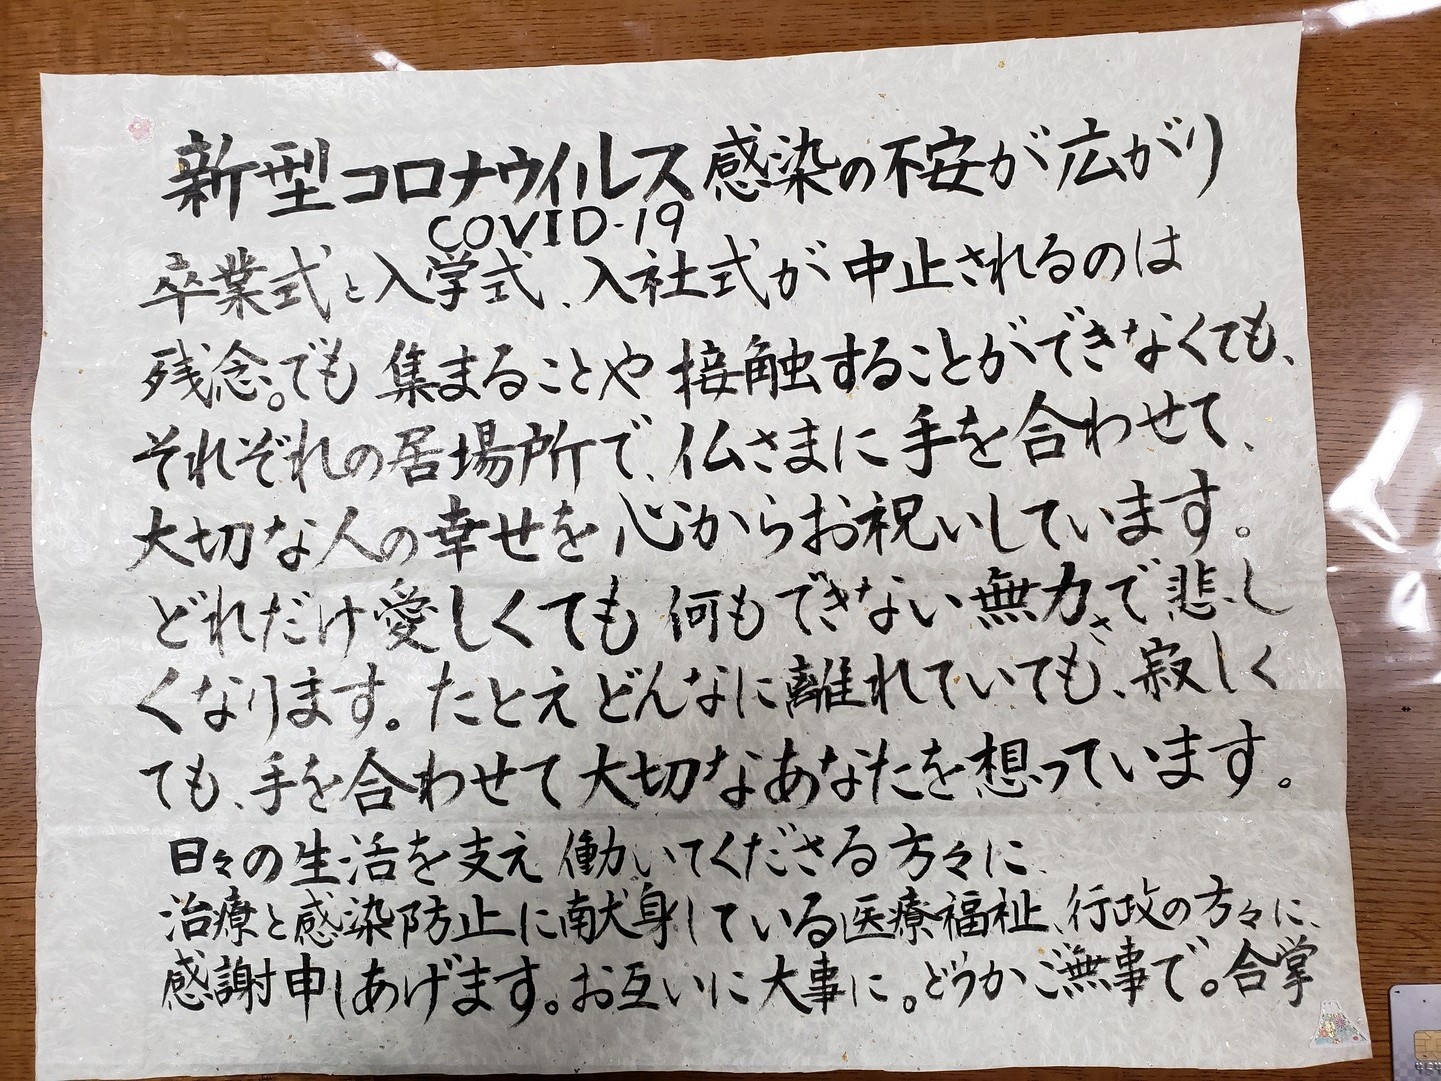 新型コロナウィルス感染の不安が広がり
COVID-19
卒業式と入学式、入社式が中止されるのは
残念。でも集まることや接触することができなくても、
それぞれの居場所で、仏さまに手を合わせて、
大切な人の幸せを心からお祝いしています。
どれだけ愛しくても何もできない無力さで悲し
くなります。たとえどんなに離れていても、寂しく
ても、手を合わせて大切なあなたを想っています。
日々の生活を支え働いてくださる方々に、
治療と感染防止に献身している医療福祉、行政の方々に、
感謝申しあげます。お互いに大事に。どうかご無事で。合掌